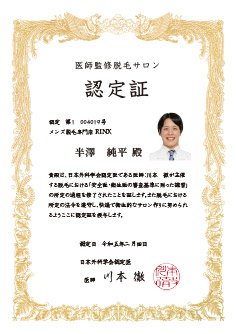 医師監修脱毛サロン
認定証
認定　第1　004019号
メンズ脱毛専門店 RINX
半澤　純平 殿
貴殿は、日本外科学会認定医である医師:川本　徹が主催
する脱毛における「安全面・衛生面の審査基準に則った講習」
の所定の過程を修了されたことを証します。また脱毛における
所定の法令を遵守し、快適で衛生的なサロン作りに努められ
るようここに認定証を授与します。
認定日　令和五年二月四日
日本外科学会認定医
医師　川本 徹